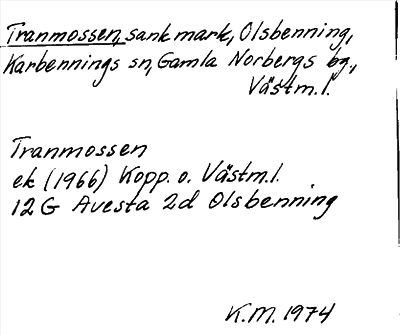 Tranmossen, sank mark, Olsbenning,
Karbennings sn, Gamla Norbergs bg.,
Västm.l.
Tranmossen
ek (1966) Kopp. o. Västm.l.
12G Avesta 2d Olsbenning
K.M. 1974